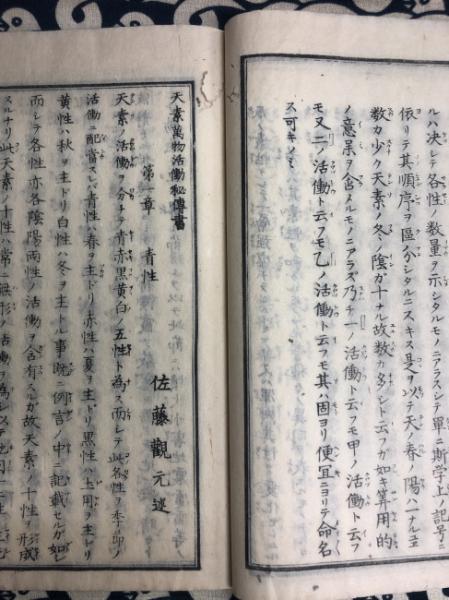 ルハ決シテ各性ノ数量ヲ示シタルモノニアラスシテ單ニ斯学上ノ記号ニ
依リテ其順序ヲ區分シタルニスキス是ヲ以テ天ノ春ノ陽ハ一ナル
数カ少ク天素ノ冬ノ陰ガ十ナル故数カ多シト云フガ如キ算用的
ノ意味ヲ含メルモノニアラズ乃チ一ノ活働ト云フモ甲ノ活働ト云フ
モ又二ノ活働ト云フモ乙ノ活働ト云フモ其ハ固ヨリ便宜ニヨリテ命名
ス可キノミ
天素萬物活働秘傳書
佐藤觀元述
第一章　青性
天素ノ活働ヲ分チテ青赤黒黄白ノ五性ト為ス而シテ此各性ヲ季節ノ
活働ニ配當スレバ青性ハ春ヲ主ドリ赤性ハ夏ヲ主ドリ黒性ハ土用ヲ主ドリ
黄性ハ秋ヲ主ドリ白性ハ冬ヲ主ドル事既ニ例言ノ中ニ記載セルガ如シ
而シテ各性亦各陰陽両性ノ活働ヲ含有スルガ故天素ノ十性ヲ形成
スルナリ此天素ノ十性ハ常ニ無形ノ活働ヲ為シ